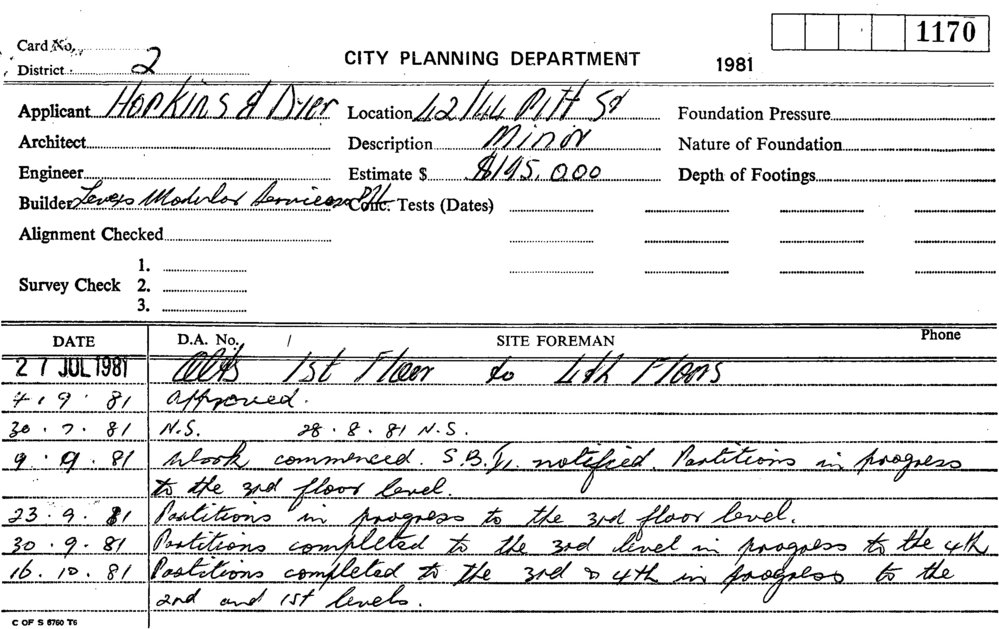 1170
Card No.
District 2
CITY PLANNING DEPARTMENT 1981
Applicant Hopkins & Dyer Location 42/44 Pitt St Foundation Pressure
Architect Description Minor Nature of Foundation
Engineer Estimate $ $195,000 Depth of Footings
Builder Modular Services P/L Conc. Tests (Dates)
Alignment Checked
1.
Survey Check 2.
3.
DATE D.A. No. / SITE FOREMAN Phone
27 JUL 1981 Alts 1st Floor to 4th Floors
4.9.81 Approved.
30.7.81 N.S. 28.8.81 N.S.
9.9.81 Work commenced. notified. Partitions in progress
to the 3rd floor level.
23.9.81 Partitions in progress to the 3rd floor level.
30.9.81 Partitions completed to the 3rd level in progress to the 4th
16.10.81 Partitions completed to the 3rd & 4th in progress to the
2nd and 1st levels.
C OF S 6760 T6